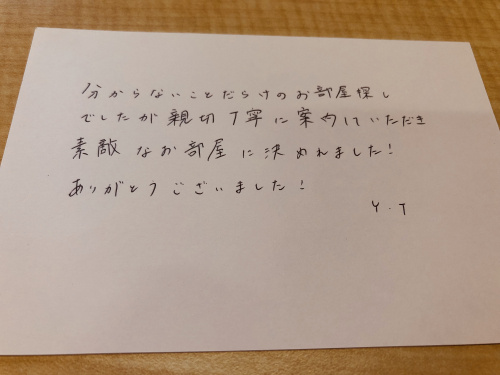 分からないことだらけのお部屋探し
でしたが親切丁寧に案内していただき
素敵なお部屋に決めれました!
ありがとうございました!
Y.T